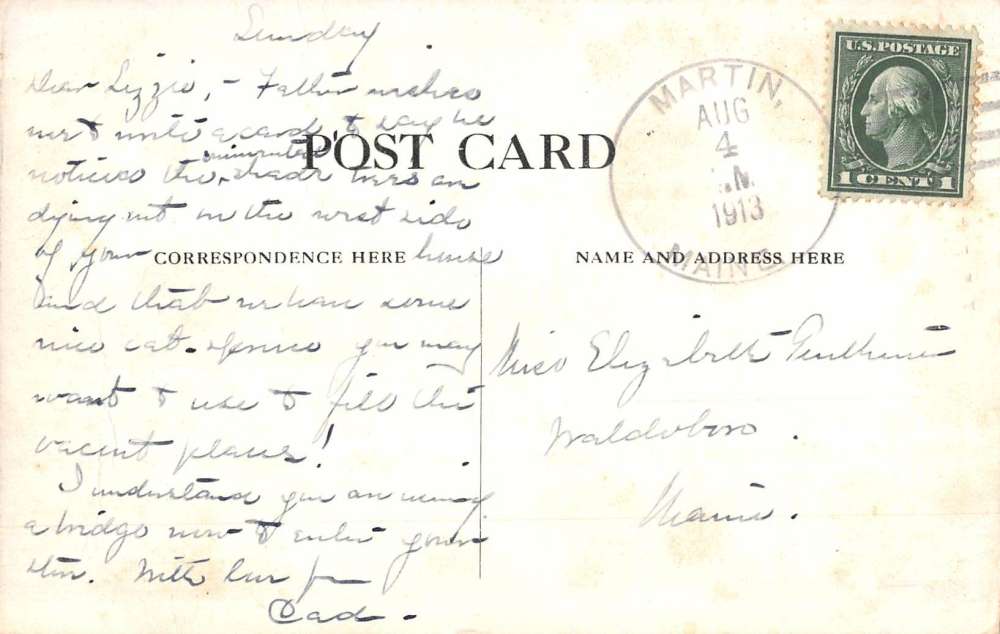 Sunday
Dear Lizzie, - Father wishes
me to write a card to say he
POST CARD
notices the immented shade trees are
dying out on the west side
of your house
CORRESPONDENCE HERE
and that we have some
nice cat-spruce you may
want to use to fill the
vacant places!
I understand you are using
a bridge now to enter your
With love from
Cad -
MARTIN,
AUG
4
M
1913
MAINE
U.S. POSTAGE
1 CENT 1
NAME AND ADDRESS HERE
Miss Elizabeth
Waldoboro.
Maine.